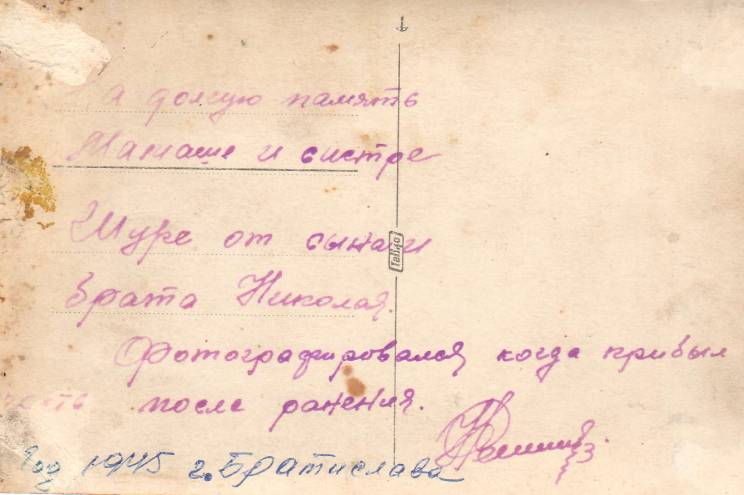 а долгую память
Мамаше и систре
Шуре от сына и
брата Николая.
Фотографировался когда прибыл
часть после ранения.
год 1945 г. Братислава